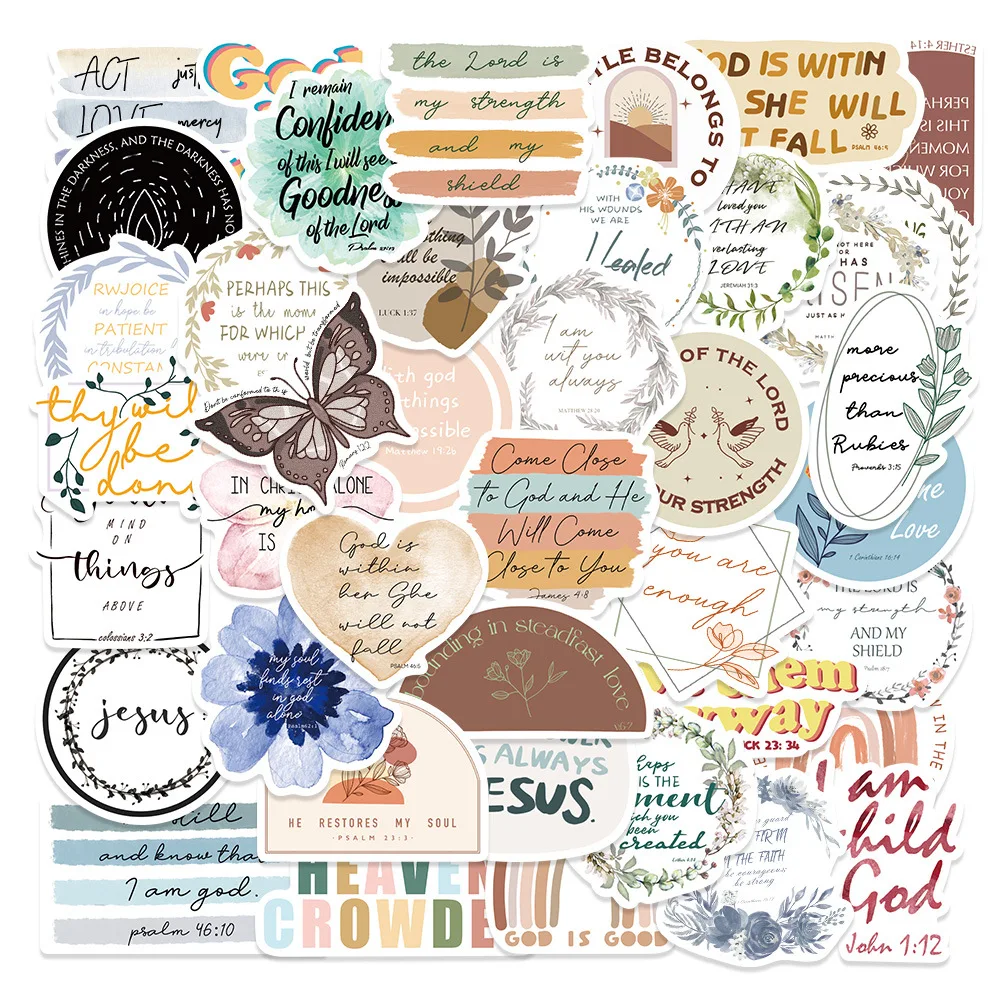 ACT just
LOVE mercy
God
I remain
Confiden
of this I will see
Goodness
of the Lord
Psalm 27:13
the Lord is
my strength
and my
shield
TLE BELONGS TO
OD IS WITIN
SHE WILL
T FALL
PSALM 46:5
ESTHER 4:14
PERHA
THIS IS
MOMEN
FOR WH
YOU
HINES IN THE DARKNESS, AND THE DARKNESS HAS NO
RWJOICE
in hope be
PATIENT
in tribulation
CONSTAN
PERHAPS THIS
is the mome
FOR WHICH
were cr
thing
ll be
impossible
LUCK 1:37
WITH
HIS WOUNDS
WE ARE
Healed
HAVE
loved you
ITH AN
verlasting
LOVE
JEREMIAH 31:3
NOT HERE
HAS
ISEN
JUST AS H
MATTH
I am
wit you
always
MATTHEW 28:20
OF THE LORD
OUR STRENGTH
more
precious
than
Rubies
Proverbs 3:15
thy wil
be
done
Don't be conformed to this
world but be transformed
Romans 12:2
ith god
things
possible
Matthew 19:26
IN CHRIST ALONE
my ho
IS
Come Close
to God and He
Will Come
Close to You
James 4:8
ne
Love
1 Corinthians 16:14
MIND
ON
things
ABOVE
colossians 3:2
God is
within
her She
will not
fall
PSALM 46:5
you are
enough
THE LORD IS
my strength
AND MY
SHIELD
Psalm 28:7
jesus
my soul
finds rest
in god
alone
Psalm62:1
bounding in steadfast love
hem
way
CK 23: 34
HE RESTORES MY SOUL
- PSALM 23:3 -
S ALWAYS
ESUS.
erhaps
IS THE
ment
ich you
been
created
Esther 4:14
V IN THE
guard
FIRM
N THE FAITH
be courageous
be strong
I am
hild
God
John 1:12
till
and know tha
I am god.
psalm 46:10
HEAVEN
CROWDE
GOD IS GOOD